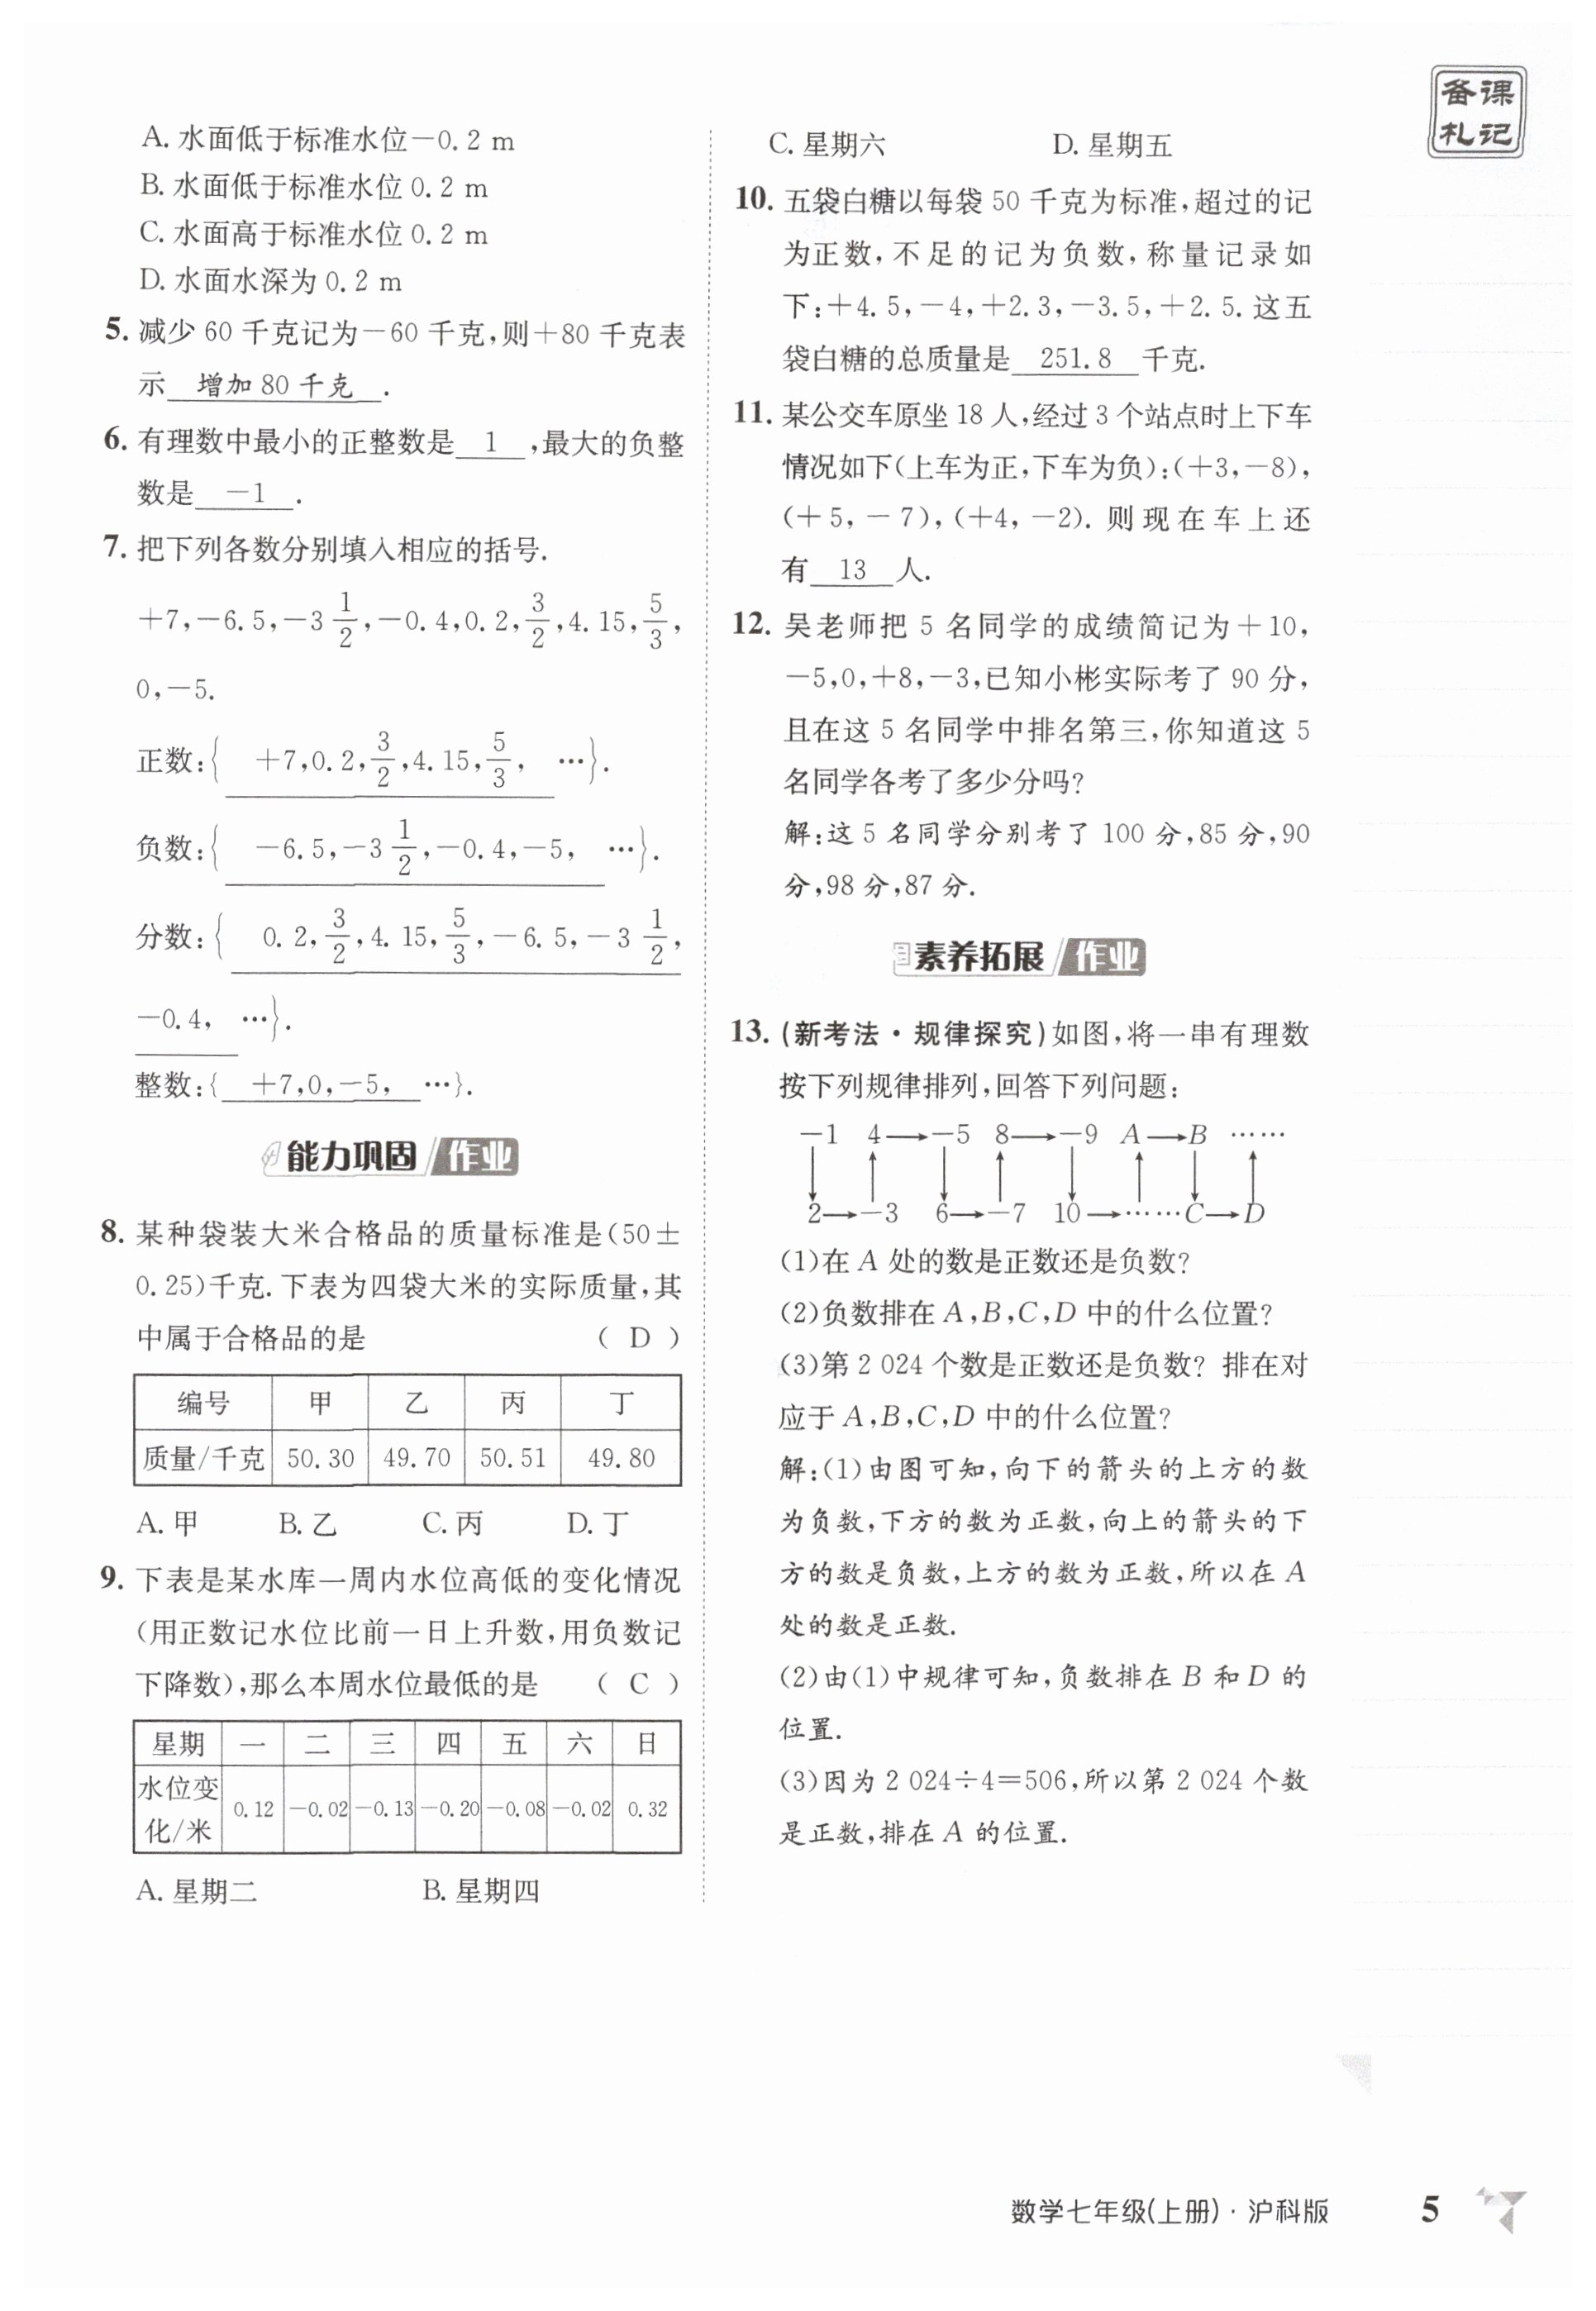 备课
札记
A. 水面低于标准水位－0. 2 m
B. 水面低于标准水位 0. 2 m
C. 水面高于标准水位 0. 2 m
D. 水面水深为 0. 2 m
5. 减少 60 千克记为－60 千克,则＋80 千克表
示 增加 80 千克 .
6. 有理数中最小的正整数是 1 ,最大的负整
数是 －1 .
7. 把下列各数分别填入相应的括号.
＋7,－6. 5,－3 1/2,－0. 4,0. 2,3/2,4. 15,5/3,
0,－5.
正数:{ ＋7,0. 2,3/2,4. 15,5/3, …}.
负数:{ －6. 5,－3 1/2,－0. 4,－5, …}.
分数:{ 0. 2,3/2,4. 15,5/3,－6. 5,－3 1/2,
－0. 4, …}.
整数:{ ＋7,0,－5, …}.
能力巩固 作业
8. 某种袋装大米合格品的质量标准是(50±
0. 25)千克. 下表为四袋大米的实际质量,其
中属于合格品的是 ( D )
编号 甲 乙 丙 丁
质量/千克 50. 30 49. 70 50. 51 49. 80
A. 甲 B. 乙 C. 丙 D. 丁
9. 下表是某水库一周内水位高低的变化情况
(用正数记水位比前一日上升数,用负数记
下降数),那么本周水位最低的是 ( C )
星期 一 二 三 四 五 六 日
水位变
化/米 0. 12 －0. 02 －0. 13 －0. 20 －0. 08 －0. 02 0. 32
A. 星期二 B. 星期四
C. 星期六 D. 星期五
10. 五袋白糖以每袋 50 千克为标准,超过的记
为正数,不足的记为负数,称量记录如
下:＋4. 5,－4,＋2. 3,－3. 5,＋2. 5. 这五
袋白糖的总质量是 251. 8 千克.
11. 某公交车原坐 18 人,经过 3 个站点时上下车
情况如下(上车为正,下车为负):(＋3,－8),
(＋5,－7),(＋4,－2). 则现在车上还
有 13 人.
12. 吴老师把 5 名同学的成绩简记为＋10,
－5,0,＋8,－3,已知小彬实际考了 90 分,
且在这 5 名同学中排名第三,你知道这 5
名同学各考了多少分吗?
解:这 5 名同学分别考了 100 分,85 分,90
分,98 分,87 分.
素养拓展 作业
13. (新考法·规律探究)如图,将一串有理数
按下列规律排列,回答下列问题:
－1 4→－5 8→－9 A→B ……
↓ ↑ ↓ ↑ ↓ ↑ ↓ ↑
2→－3 6→－7 10→……C→D
(1)在 A 处的数是正数还是负数?
(2)负数排在 A,B,C,D 中的什么位置?
(3)第 2 024 个数是正数还是负数? 排在对
应于 A,B,C,D 中的什么位置?
解:(1)由图可知,向下的箭头的上方的数
为负数,下方的数为正数,向上的箭头的下
方的数是负数,上方的数为正数,所以在 A
处的数是正数.
(2)由(1)中规律可知,负数排在 B 和 D 的
位置.
(3)因为 2 024÷4＝506,所以第 2 024 个数
是正数,排在 A 的位置.
数学七年级(上册)·沪科版 5